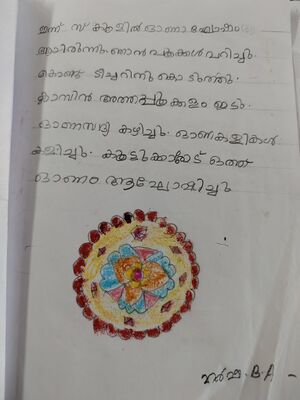 ഇന്ന് സ്കൂളിൽ ഓണാഘോഷം
ആയിരുന്നു. ഞാൻ പൂക്കൾ പറിച്ചു
കൊണ്ട് ടീച്ചറിനു കൊടുത്തു.
ക്ലാസിൽ അത്തപ്പൂക്കളം ഇട്ടു.
ഓണസദ്യ കഴിച്ചു. ഓണകളികൾ
കളിച്ചു. കൂട്ടുക്കാരോട് ഒത്ത്
ഓണം ആഘോഷിച്ചു
B.A